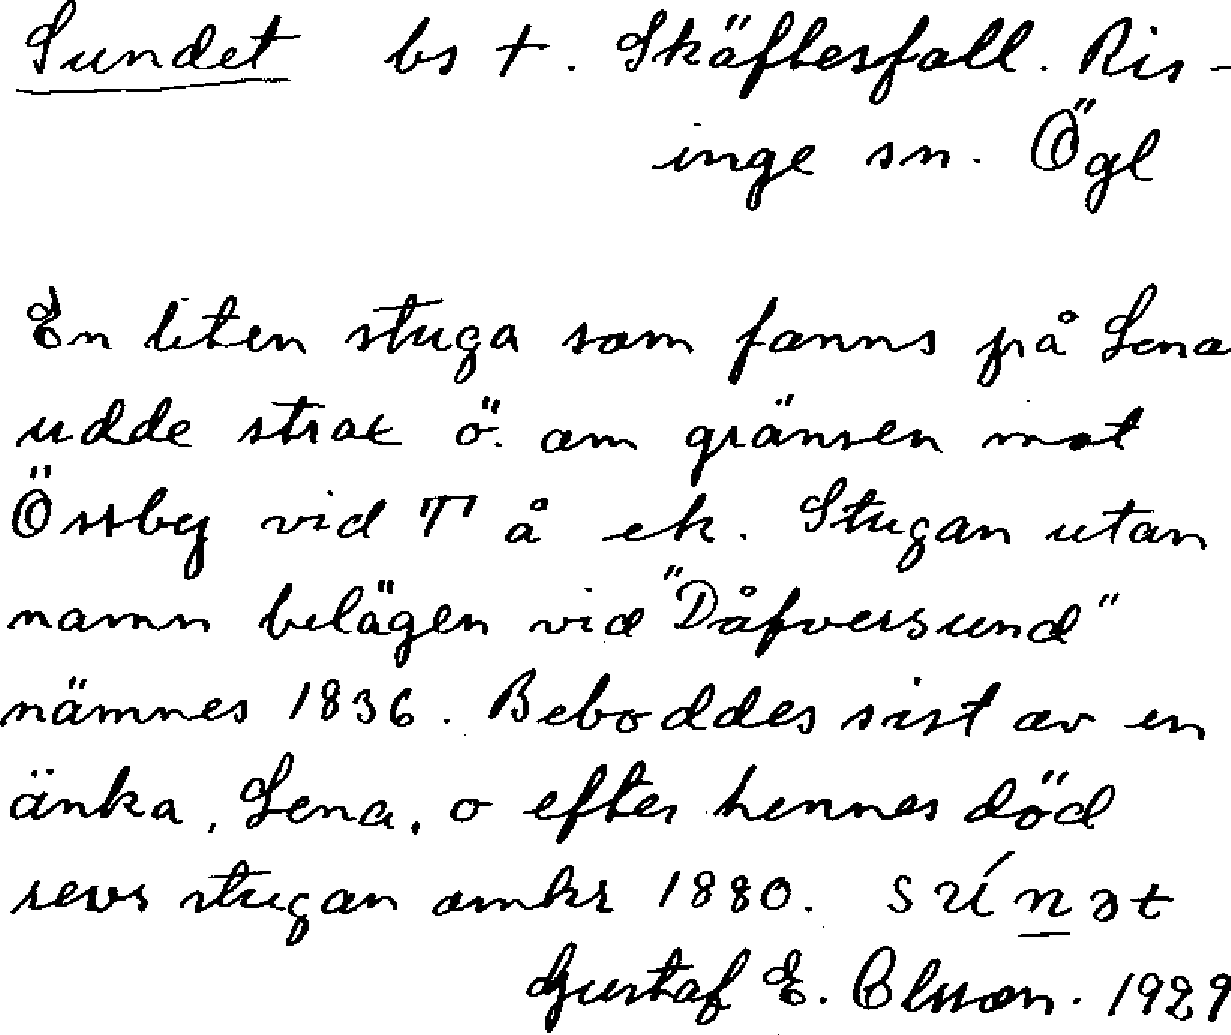 Sundet bs †. Skäftesfall. Ris-
inge sn. Ögl
En liten stuga som fanns på Lena
udde strax ö. om gränsen mot
Össby vid T å ek. Stugan utan
namn belägen vid "Dåfversund"
nämnes 1836. Beboddes sist av en
änka, Lena, o efter hennes död
revs stugan omkr 1880. súnət
Gustaf E. Olsson. 1929